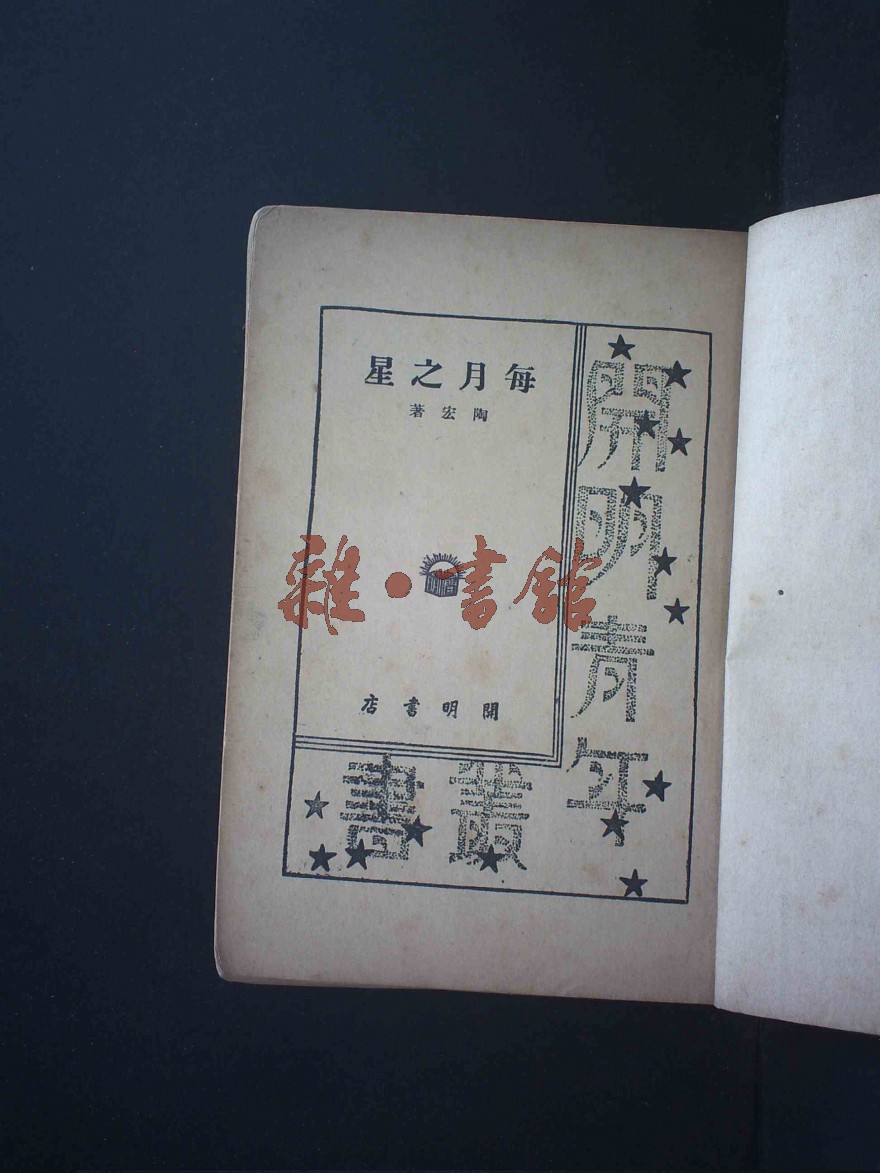 每月之星
陶宏著
開明書店
開明青年
叢書
雜·書館